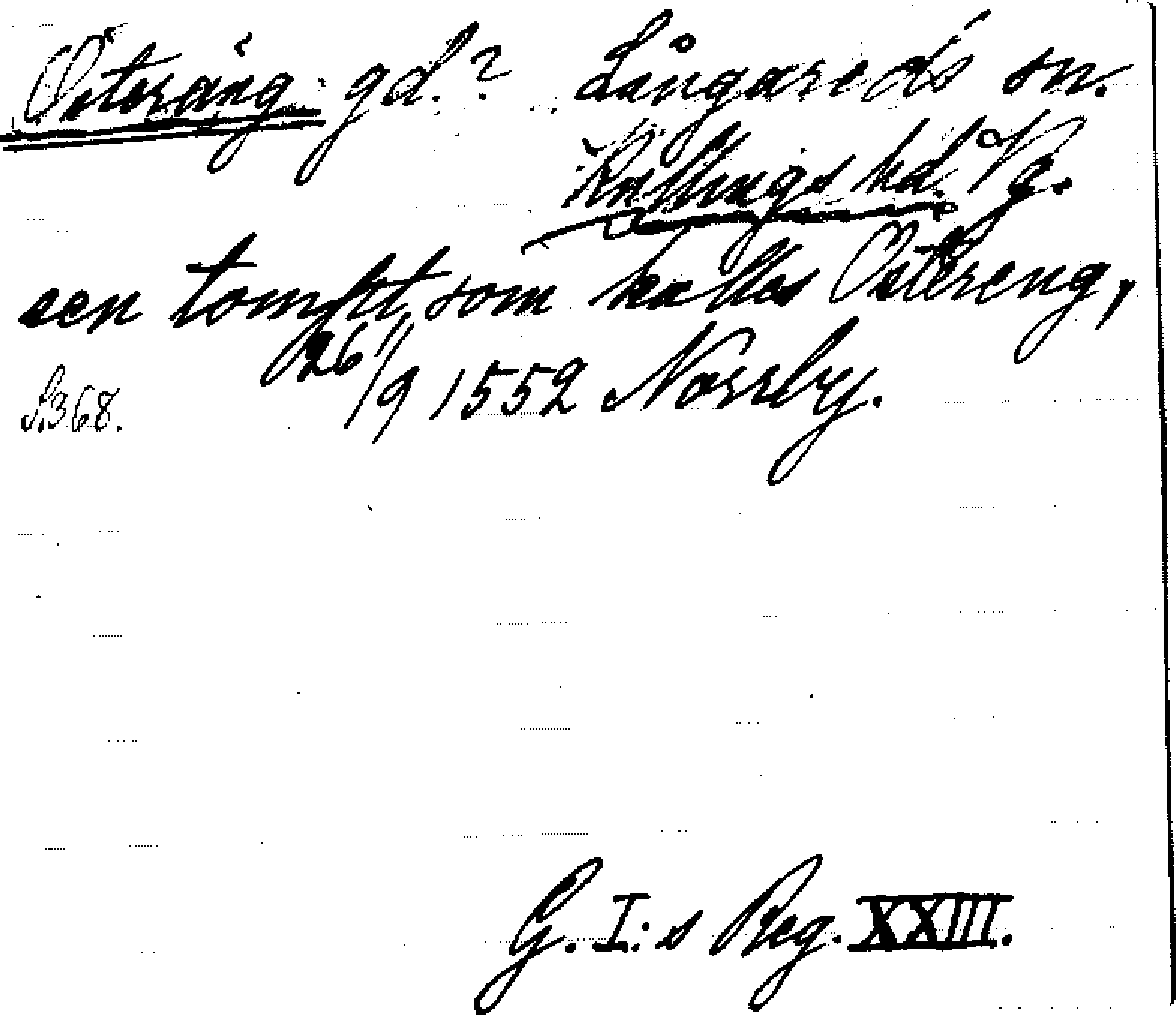 Österäng gd.? Långareds sn.
Kullings hd. Vg.
een tompt, som kalles Östereng,
S. 368. 26/9 1552 Norrby.
G. I:s Reg. XXIII.